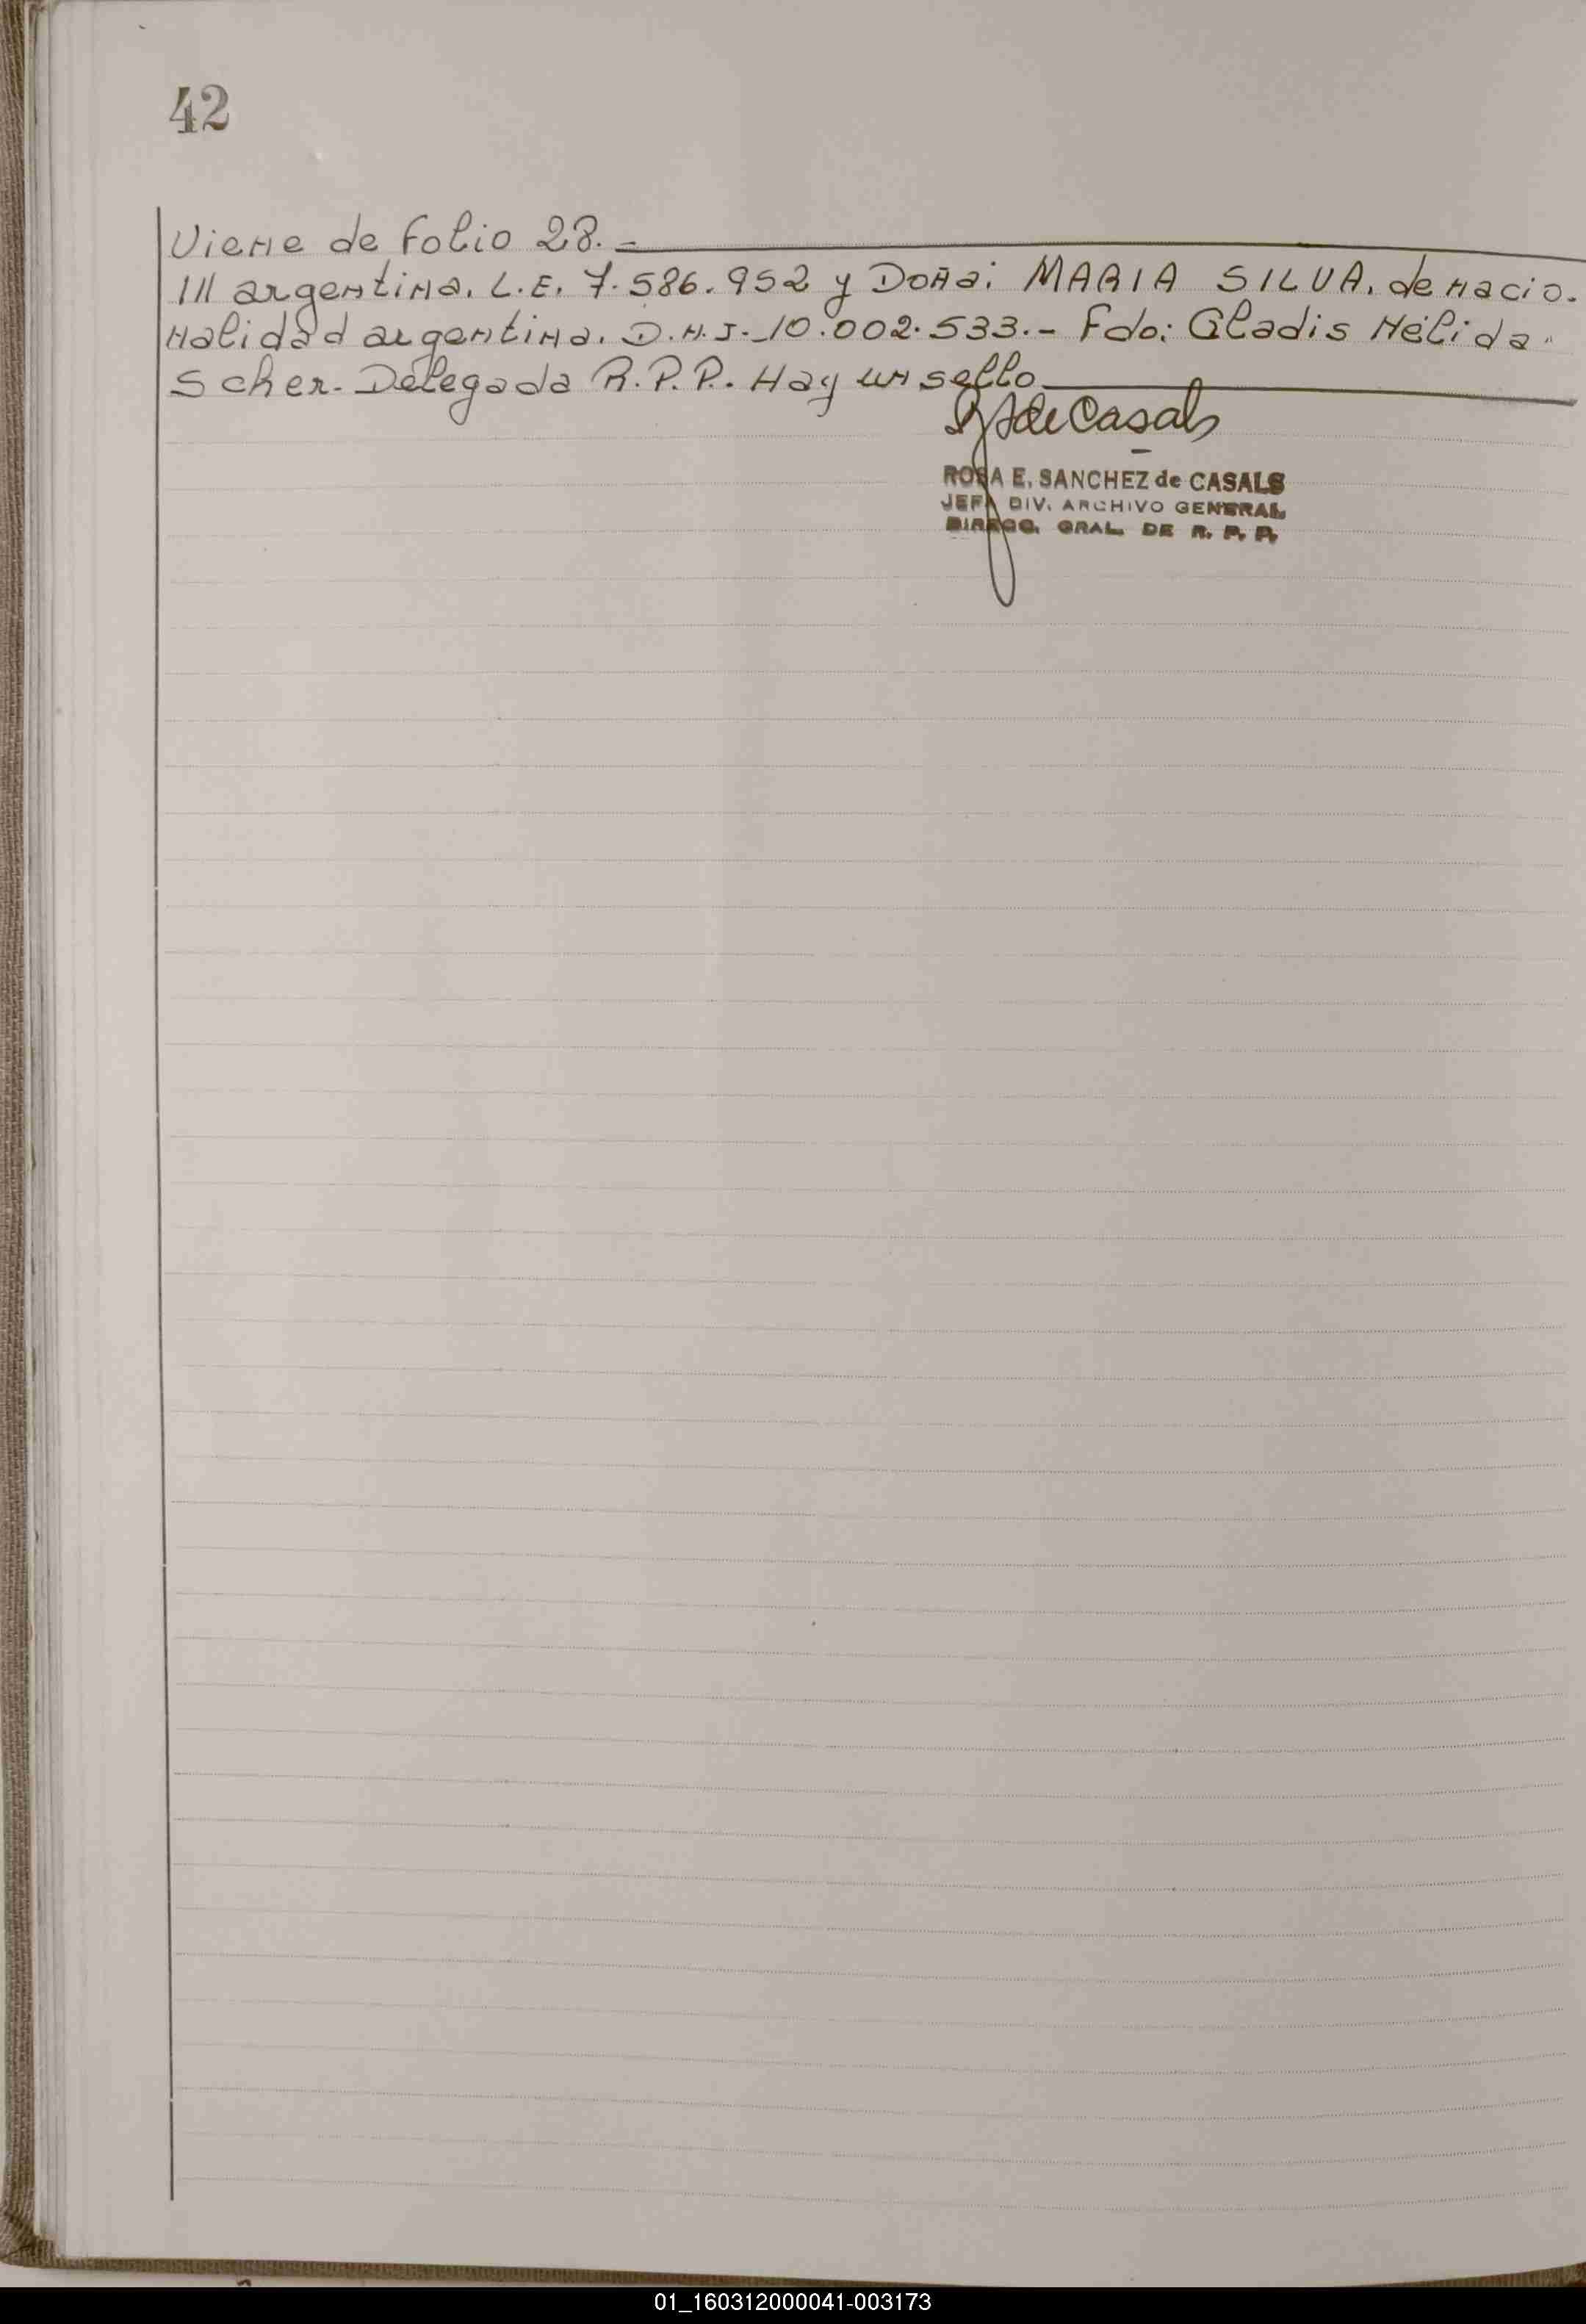 42
Viene de folio 28.-
/// argentina. L.E. 7.586.952 y Doña: MARIA SILVA. de nacio-
nalidad argentina. D.N.I. 10.002.533.- Fdo: Gladis Nélida
Scher. Delegada R.P.P. Hay un sello
RS de Casals
ROSA E. SANCHEZ de CASALS
JEFA DIV. ARCHIVO GENERAL
DIRECC. GRAL. DE R. P. P.
01_160312000041-003173